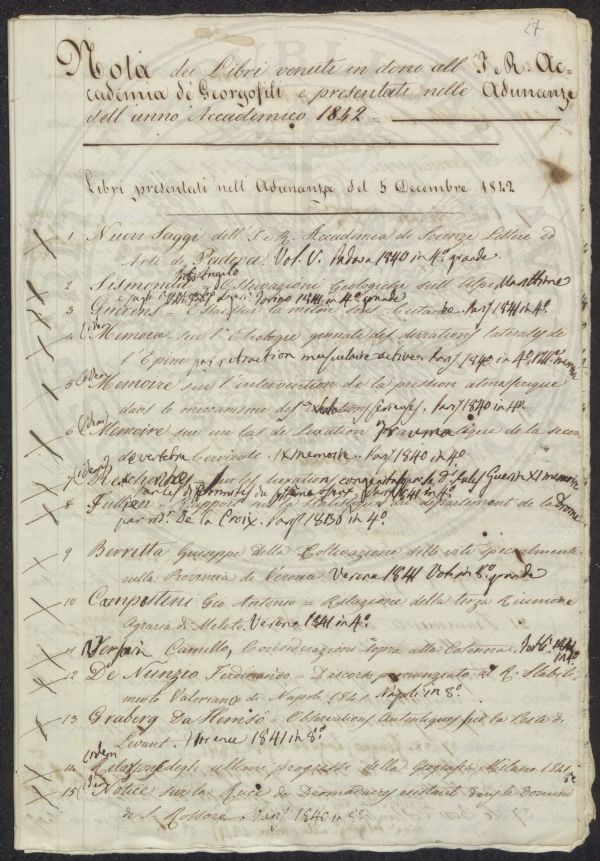 27
Nota dei Libri venuti in dono all' I. e R. Ac=
cademia de' Georgofili e presentati nelle Adunanze
dell' anno Accademico 1842 =
Libri presentati nell' Adunanza del 5 Decembre 1842
1 Nuovi Saggi dell' I. e R. Accademia di Scienze Lettere ed
Arti di Padova. Vol. V. Padova 1840 in 4º grande
2 Sismonda Angelo Osservazioni Geologiche sull' Alpi Marittime
Torino 1841 in 4º grande
3 Guerin Essai sur la Parigi 1841 in 4º
4 (idem) Memoire sur l' Etiologie generale des deviations laterales de
l' Epine par retraction musculaire active. Parigi 1840 in 4º
5 (idem) Memoire sur l' intervention de la pression atmosferique
dans le mecanisme des Parigi 1840 in 4º
6 (idem) Memoire sur un cas de Luxation de la secon
de vertebre Cervicale. IX memoire. Parigi 1840 in 4º
7 (idem) Recherches sur les luxations congenitales Guerin XI memoire
Parigi 1841 in 4º
8 Jullien Rapport sur la statistique du departement de la Drome
par Mr. De la Croix. Parigi 1836 in 4º
9 Berretta Giuseppe Della Coltivazione delle viti specialmente
nella Provincia di Verona Verona 1841 Vol. in 8º grande
10 Campostrini Gio Antonio = Relazione della terza Riunione
Agraria di Meleto. Verona 1841 in 4º
11 Camillo, Considerazioni sopra alla Catena.
in 4º
12 De Nunzio Ferdinando = Discorso pronunziato al R. Stabili-
mento Valeriano di Napoli 1841 Napoli in 8º
13 Graberg Da Hemsö = Observations Autentiques sur la Peste du
Levant. Florence 1841 in 8º
14 (idem) Relazione degli ultimi progressi della Geografia Milano 1841
15 (idem) Notice sur la Race de Dromadaires existant dans le Domaine
de S. Rossore Parigi 1840 in 8º